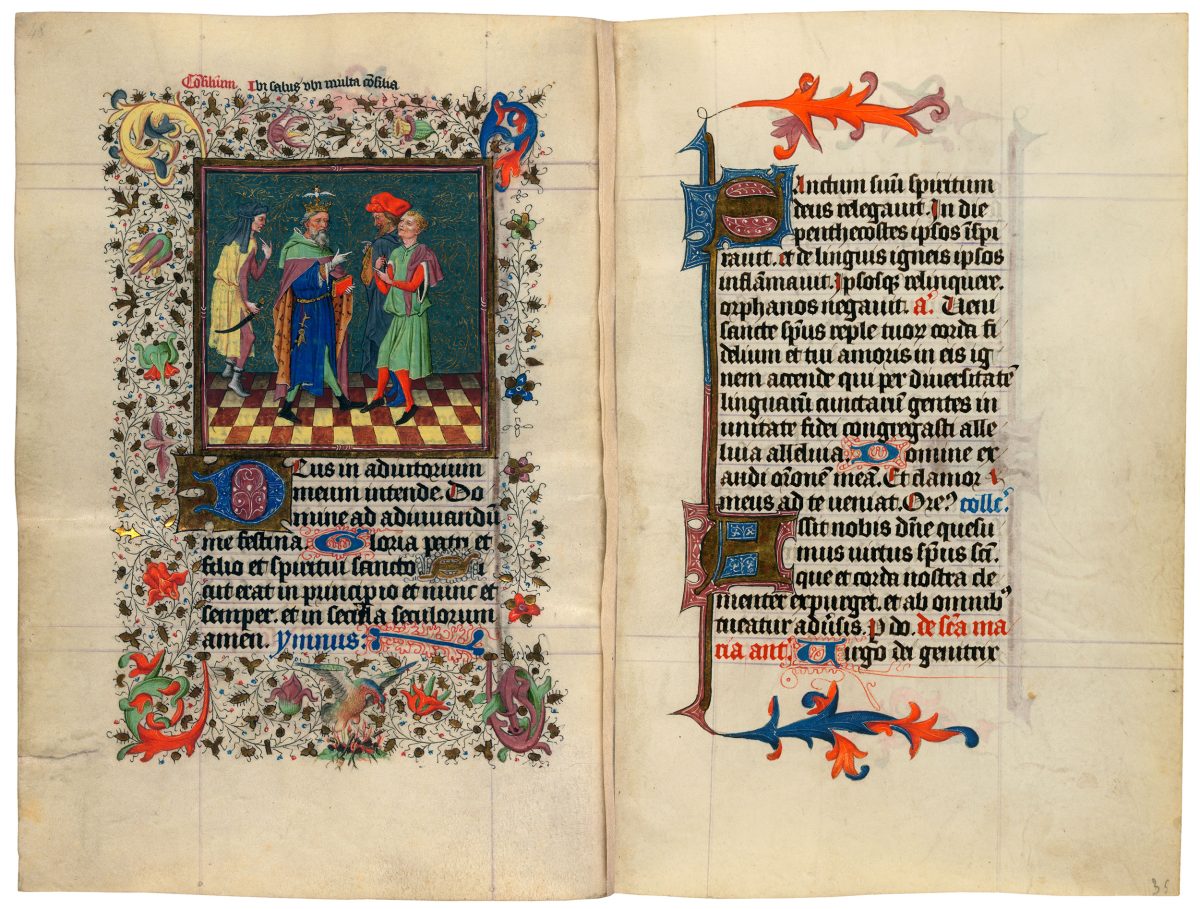 48
Cōsiliūm. Ibi salus vbi multa cōsilia
Deus in adiutorium
meum intende. Do
mine ad adiuuandū
me festina Gloria patri et
filio et spiritui sancto Si
cut erat in principio et nunc et
semper. et in secula seculorum
amen. ymnus:
Sanctum suū spiritum
deus relegauit. In die
penthecostes ipsos īspi
rauit. et de linguis igneis ipsos
inflāmauit. Ipsosq; relinquere.
orphanos negauit. a.' Ueni
sancte sp̄us reple tuor corda fi
delium et tui amoris in eis ig
nem accende qui per diuersitatē
linguarū cunctarū gentes in
unitate fidei congregasti alle
luia alleluia. Domine ex
audi or̄onē meā. Et clamor
meus ad te ueniat. Ore.' colle.'
Assit nobis dn̄e quesu
mus uirtus sp̄us sct̄.
que et corda nostra cle
menter expurget. et ab omnib'
tueatur aduʼsis. p̄ do. de sc̄a ma
ria ant.' Uirgo dei genitrix
35